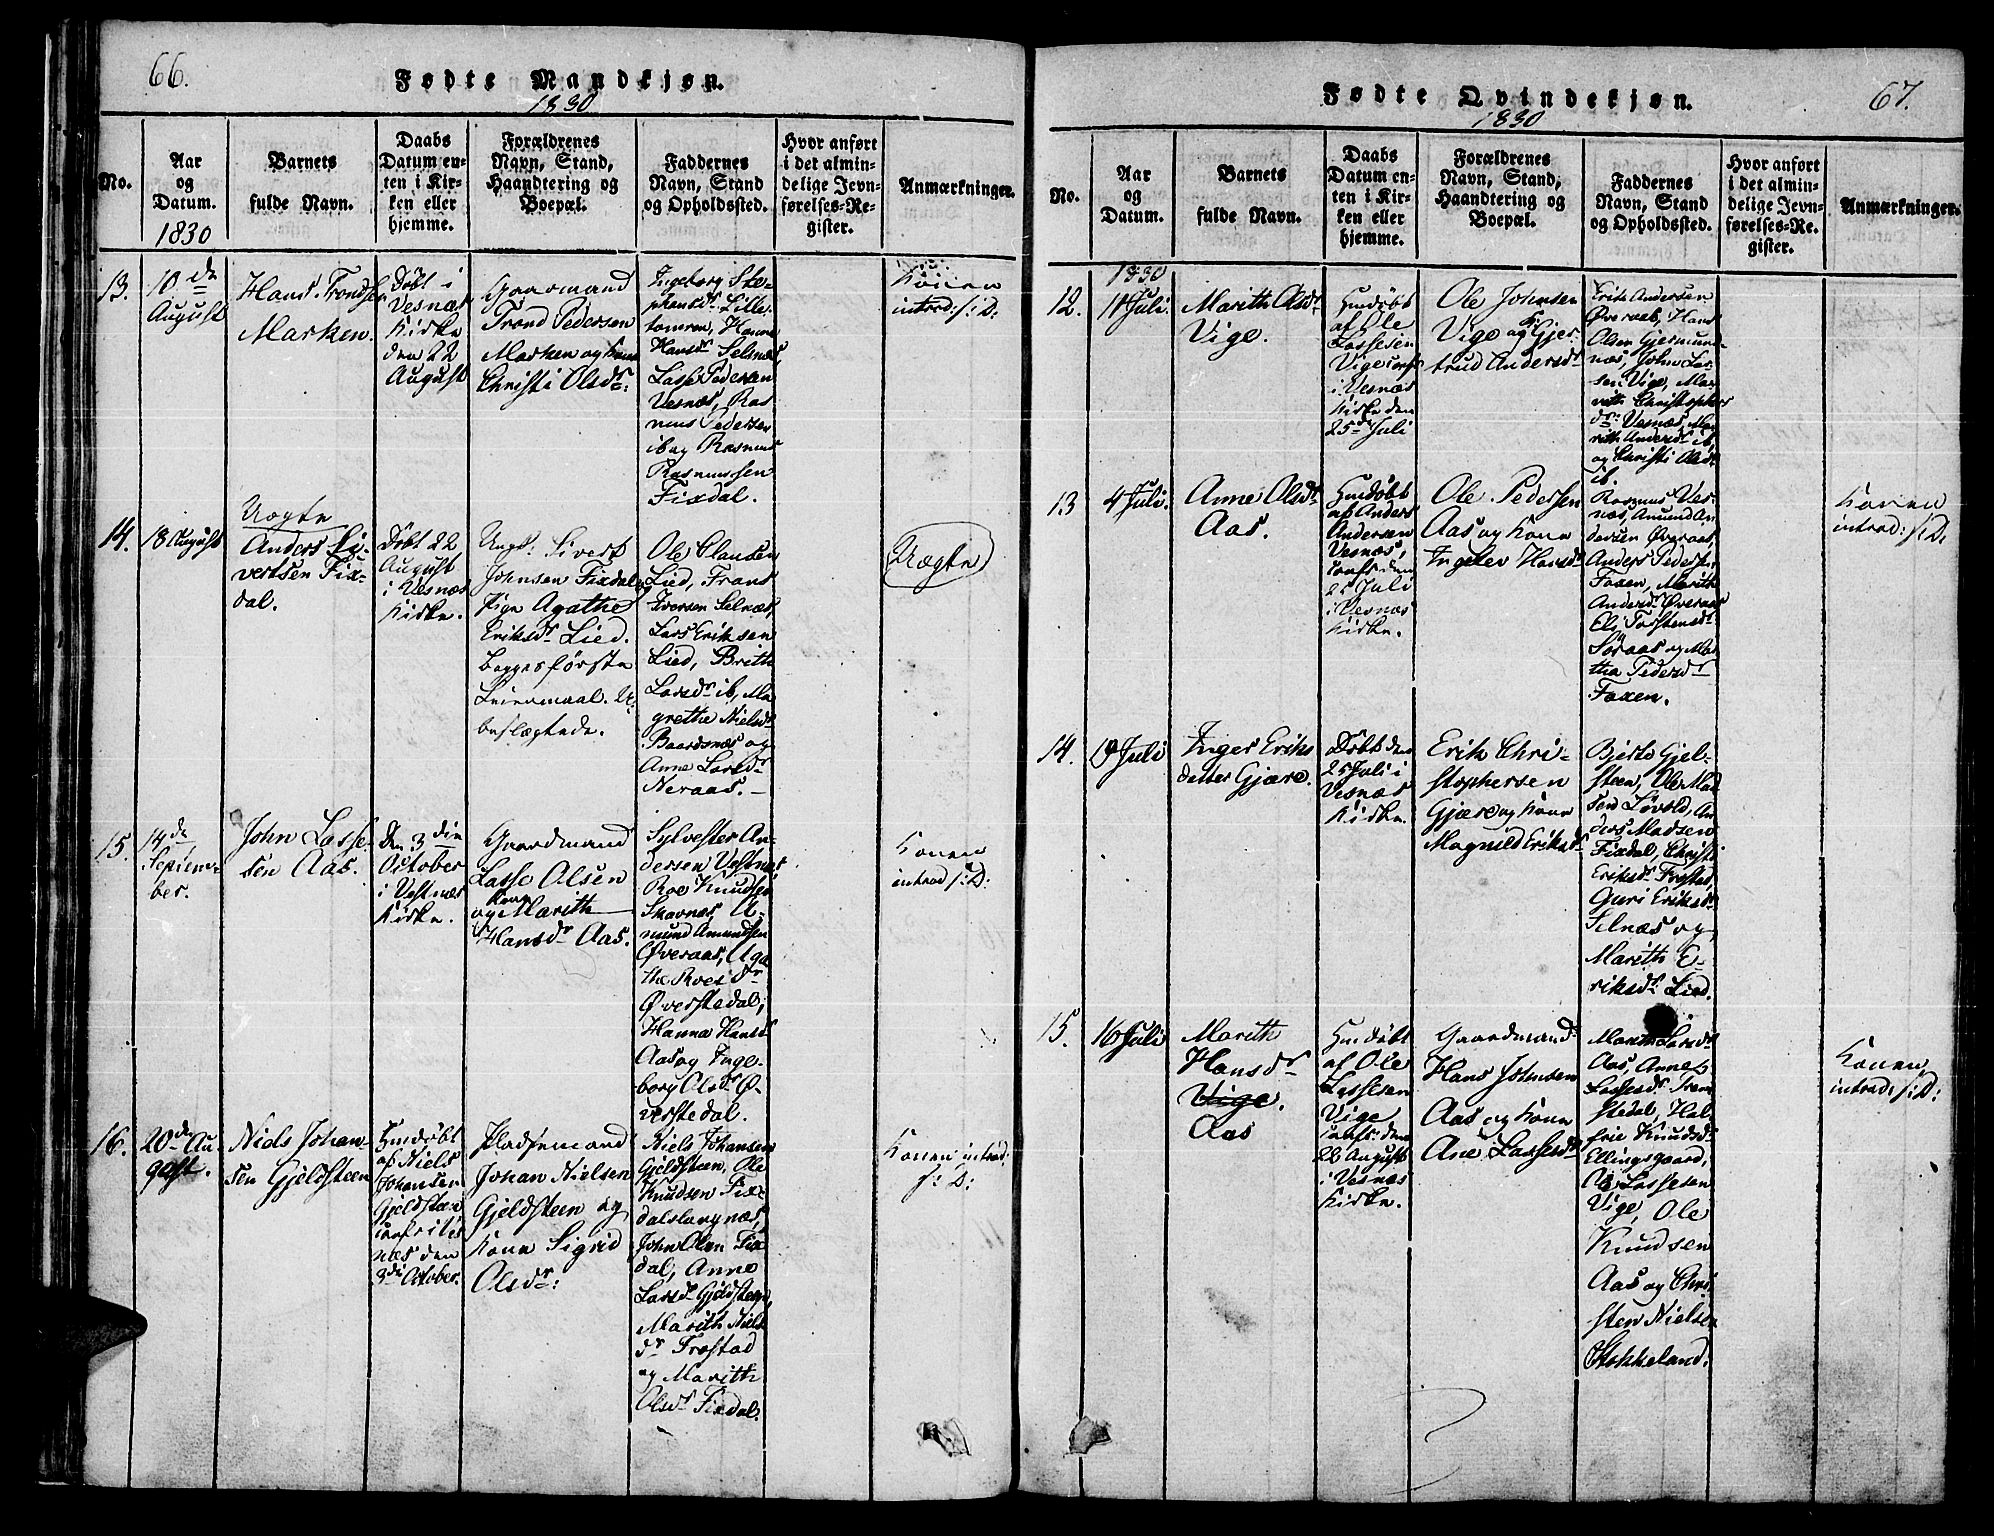 66.
Fødte Mandkjøn.
1830
No.
Aar
og
Datum.
1830
Barnets
fulde Navn.
Daabs
Datum en-
ten i Kir-
ken eller
hjemme.
Forældrenes
Navn, Stand,
Haandtering og
Boepæl.
Faddernes
Navn, Stand
og Opholdssted.
Hvor anført
i det almin-
delige Jevn-
førelses-Re-
gister.
Anmærkninger.
13.
10de
August
Hans Trondsen
Marken.
Døbt i
Vesnæs
Kirke
den 22
August
Gaardmand
Trond Pedersen
Marken og Kone
Christi Olsdr:
Ingeborg Ste-
phansdr Lille-
tomren, Hanna
Hansdr Selnæs,
Lasse Pedersen
Vesnæs, Ras
mus Pedersen
ib og Rasmus
Rasmussen
Fixdal.
Konen
introd: /: D:
14.
18 August
Uægte
Anders Si-
vertsen Fix-
dal.
Døbt 22
August
i Vesnæs
Kirke.
Ungk: Sivert
Johnsen Fixdal og
Pige Agathe
Eriksdr Lied.
Begges første
Leiermaal. U-
beslægtede.
Ole Clausen
Lied, Frans
Iversen Selnæs,
Lars Eriksen
Lied, Brith
Larsdr ib, Ma
grethe Nielsdr
Baardsnæs og
Anne Larsdr
Neraas.
Uægte
15.
14de
Septem-
ber.
John Lasse-
sen Aas.
Den 3die
October
i Vestnæs
Kirke.
Gaardmand
Lasse Olsen
og Kone Marith
Hansdr Aas.
Sylvester An-
dersen Vestnæs
Roe Knudsen
Skavnæs, A-
mund Amundsen
Øveraas, Aga
the Roesdr
Øverstedal,
Hanna Hansdr
Aas og Inge-
borg Olsdr Ø-
verstedal.
Konen
introd /: D:
16.
20de Au-
gust.
Niels Johan-
sen Gjeldsteen
Hmdøbt
af Niels
Johansen
Gjeldsteen
den
3de October.
Pladsemand
Johan Nielsen
Gjeldsteen og
Kone Sigrid
Olsdr:
Niels Johansen
Gjeldsteen, Ole
Knudsen Fix-
dalslangnæs,
John Olsen Fix
dal, Anne
Larsdr Gjeldsteen,
Marith Niels
dr Frostad
og Marith
Olsdr Fixdal.
Konen introd:
/: D:
67.
Fødte Qvindekjøn.
1830
No.
Aar
og
Datum.
Barnets
fulde Navn.
Daabs
Datum en-
ten i Kir-
ken eller
hjemme.
Forældrenes
Navn, Stand,
Haandtering og
Boepæl.
Faddernes
Navn, Stand
og Opholdssted.
Hvor anført
i det almin-
delige Jevn-
førelses-Re-
gister.
Anmærkninger.
1830
12.
Juli.
Marith Olsdr
Vige.
Hmdøbt
af Ole
Lassesen
Vige conf:
i Vesnæs
Kirke den
25de Juli
Ole Johnsen
Vige og K: Gjer
trud Andersdr
Erik Andersen
Øveraas, Hans
Olsen Gjermund-
næs, John Las-
sen Vige, Ma-
rith Christophers
dr Vesnæs, Ma
rith Andersdr ib
og Christi Olsdr
ib.
13
4 Juli.
Anne Olsdr
Aas.
Hmdøbt
af Anders
Andersen
Vesnæs,
conf: den
25 Juli
i Vesnæs
Kirke.
Ole Pedersen
Aas og Kone
Ingelev Hansdr
Rasmus Ves-
næs, Amund An
dersen Øveraas,
Anders Pedersen
Faxen, Marith
Andersdr Øveraas
Eli Torstensdr
Søraas og Mar
tha Pedersdr
Faxen.
Konen
introd: /: D:
14.
Juli
Inger Eriks
datter Gjære.
Døbt den
25 Juli i
Vesnæs
Kirke.
Erik Chri-
stophersen
Gjære og Kone
Magnild Eriksdr
Gjel-
steen, Ole Mad
sen Løvold, An
ders Madsen
Fixdal, Christi
Eriksdr Frostad,
Guri Eriksdr
Selnæs og
Marith E-
riksdr Lied.
15.
16 Juli
Marith
Hansdr
Vige.
Aas
Hmdøbt
af Ole
Lassesen
Vige
conf: den
22 August
i Vesnæs
Kirke.
Gaardmand
Hans Johnsen
Aas og Kone
Ane Lassesdr
Marith Larsdr
Aas, Anne
Lassesdr Trem
stedal, Hal-
frie Knudsdr
Ellingsgaard,
Ole Lassesen
Vige, Ole
Knudsen
Aas og Chri
sten Nielsen
Stokkeland.
Konen
introd: /: D: